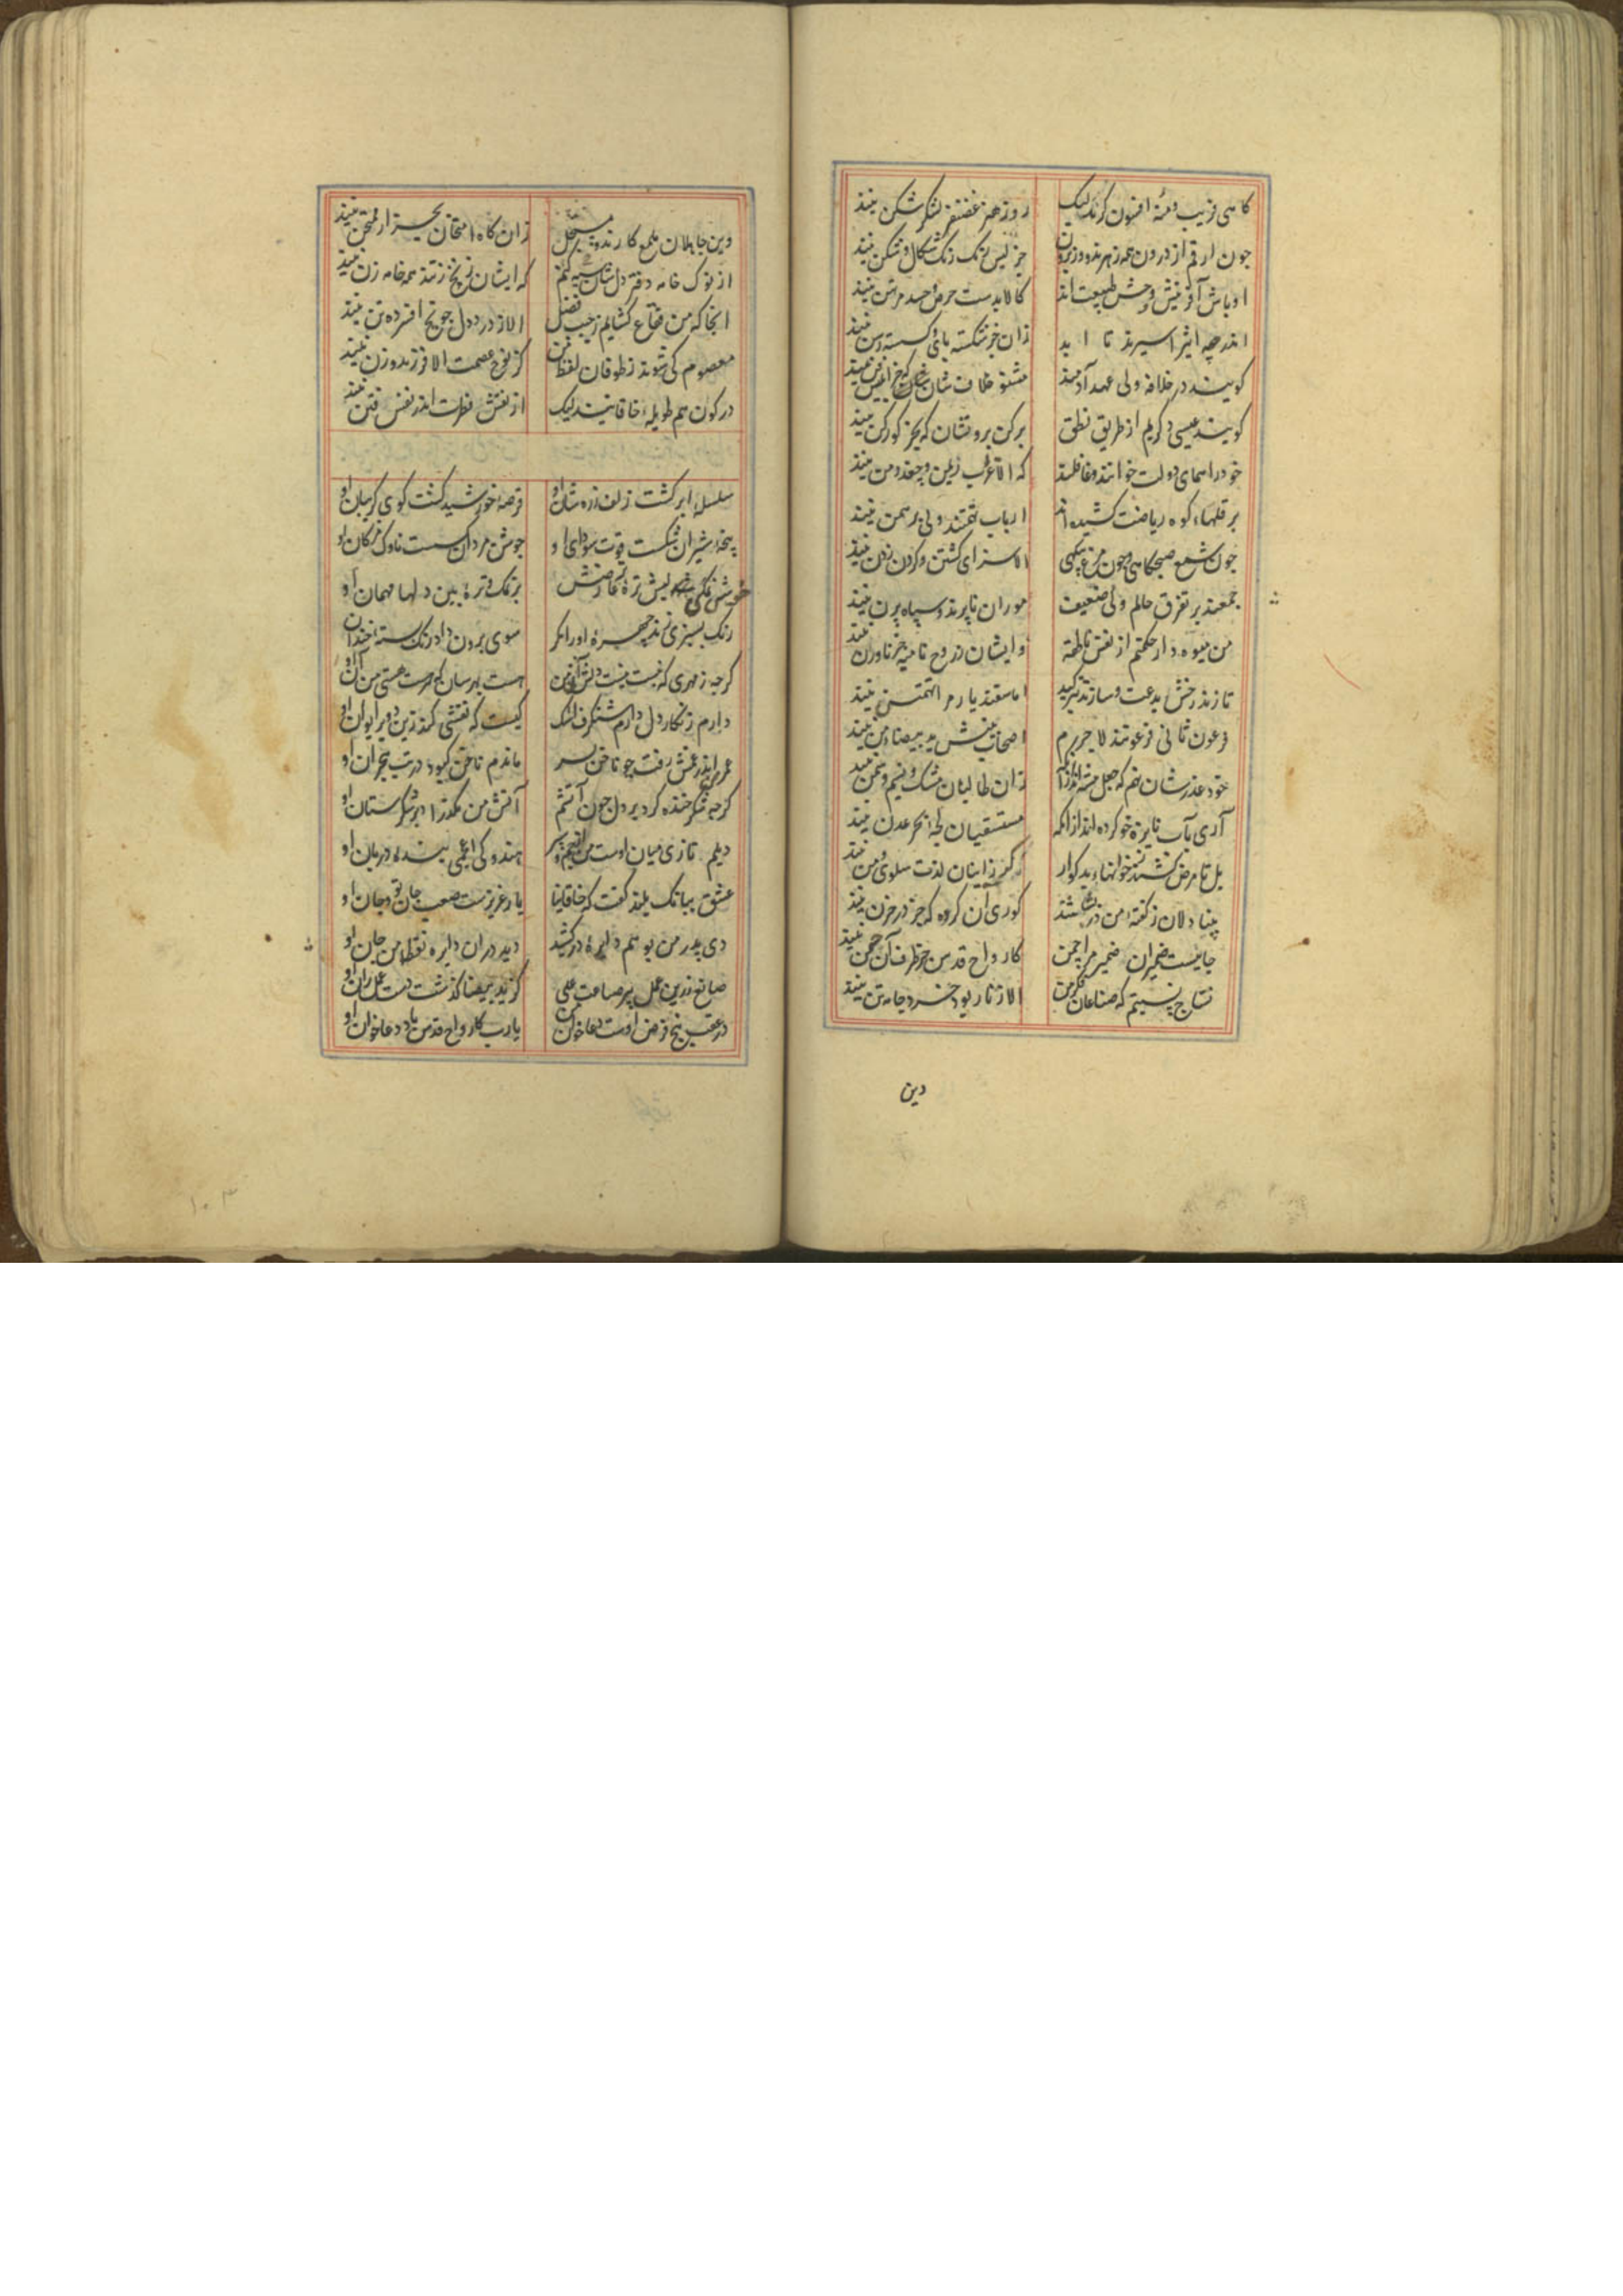 کاهی فریب دمنه افسون کرند لیک روز هنر غضنفر لشکر شکن نیند
جون ارقم از درون همه زهرند و وز برون جز لیس رنک رنک شکال و شکن نیند
اوباش آفرینش و حشو طبیعت اند کالا بدست حرص و حسد مرتهن نیند
اندر چه اثیر اسیرند تا ابد زان جز شکسته بای و کسسته رسن نیند
کویند در خلافه ولی عهد آدمند مشنو خلافشان که جز ابلیس فن نیند
کویند عیسی دکریم از طریق نطق برکن بروتشان که بجز کورکن نیند
خود را همای دولت خوانند و غافلند که الا غراب ریمن و جغد دمن نیند
بر قلهاء کوه ریاضت کشیده اند ارباب تهمتند ولی برهمن نیند
جون شمع صبحکاهی و جون مرغ بیکهی الا سزای کشتن و کردن زدن نیند
جمعند بر تفرق عالم ولی ضعیف موران نا برند و سپاه برن نیند
من میوه دار حکمتم از نفس ناطقه و ایشان ز روح نامیه جز نارون نیند
تا زند رخش بدعت و سازند تیر کید اما سفندیار مرا تهمتن نیند
فرعون ثانی فرعونند لاجرم اصحاب بینش ید بیضاء من نیند
خود عذرشان نهم که جعل پیشه اند از آنک زان طالبان مشک و نسیم و سمن نیند
آری بآب نایژه خو کرده اند از انکه مستسقیان لجه بحر عدن نیند
بل تا مرض کشند ز خوانهاء بد کوار کز زاینان لذت سلوی و من نیند
بینا دلان ز کفته من در بشاشتند کوری آن کروه که جز در حزن نیند
جاییست ضمیران ضمیر مرا چمن کارواح قدس جز طرف آن چمن نیند
نساج نسبتم که صناعات فکر من الا ز تار و پود خرد جامه تن نیند
دین
وین جاهلان ملمع کارند و منتحل زان کاه امتحان بجز از ممتحن نیند
از نوک خامه دفتر دلشان سیه کنم که ایشان زنخ زنند همه خامه زن نیند
انجا که من فقاع کشایم ز جیب فضل الا ز درد دل جو یخ افسرده تن نیند
معصوم کی شوند ز طوفان لفظ من کز نوح عصمت الا فرزند و زن نیند
در کون هم طویله خاقانیند لیک از نقش فطرت اند ز نفس فتن نیند
سلسله ابر کشت زلف زره سان او قرصه خورشید کشت کوی کریبان او
پنجه شیران شکست قوت سودای او جوشن مردان کسست ناوک مژکان او
خوش نمکی شد لبش تره تر عارضش بر نمک و تره بین دلها مهمان او
رنک بسبزی زند چهره او را مکر سوی برون داد رنک بسته خندان او
کرچه زمهری که نیست نیست دلش آن من هست بهر سان که هست هستی من آن او
دارم زنکار دل دارم شنکرف اشک کیست که نقشی کند زین دو بر ایوان او
عمر من اندر غمش رفت چو ناخن بسر ماندم ناخن کبود در تب هجران او
کرچه شکر خنده کرد بر دل جون آتشم آتش من مکذرا در بر شکرستان او
دیلم تازی میان اوست من از چشم و سر هندوکی اعجمی بنده دربان او
عشق ببانک بلند کفت که خاقانیا یار عزیزست صعب جان تو و جان او
دی پدر من بوهم دایره در کشید دید در ان دایره نقطه من جان او
صانع زرین عمل پیر صناعت علی کز ید بیضا کذشت دست عمل ران او
در عقب پنج فرض اوست دعا خوان من یارب کارواح قدس باد دعا خوان او